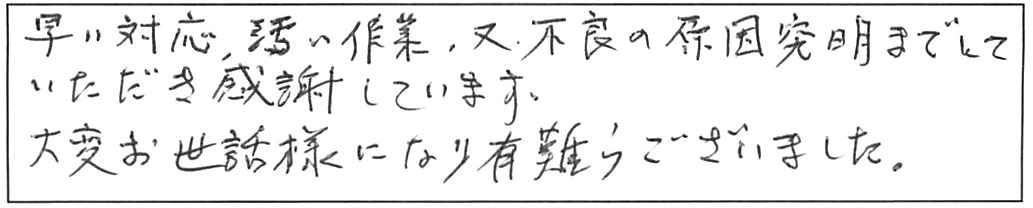 早い対応、作業、又、不良の原因究明までして
いただき感謝しています。
大変お世話様になり有難うございました。